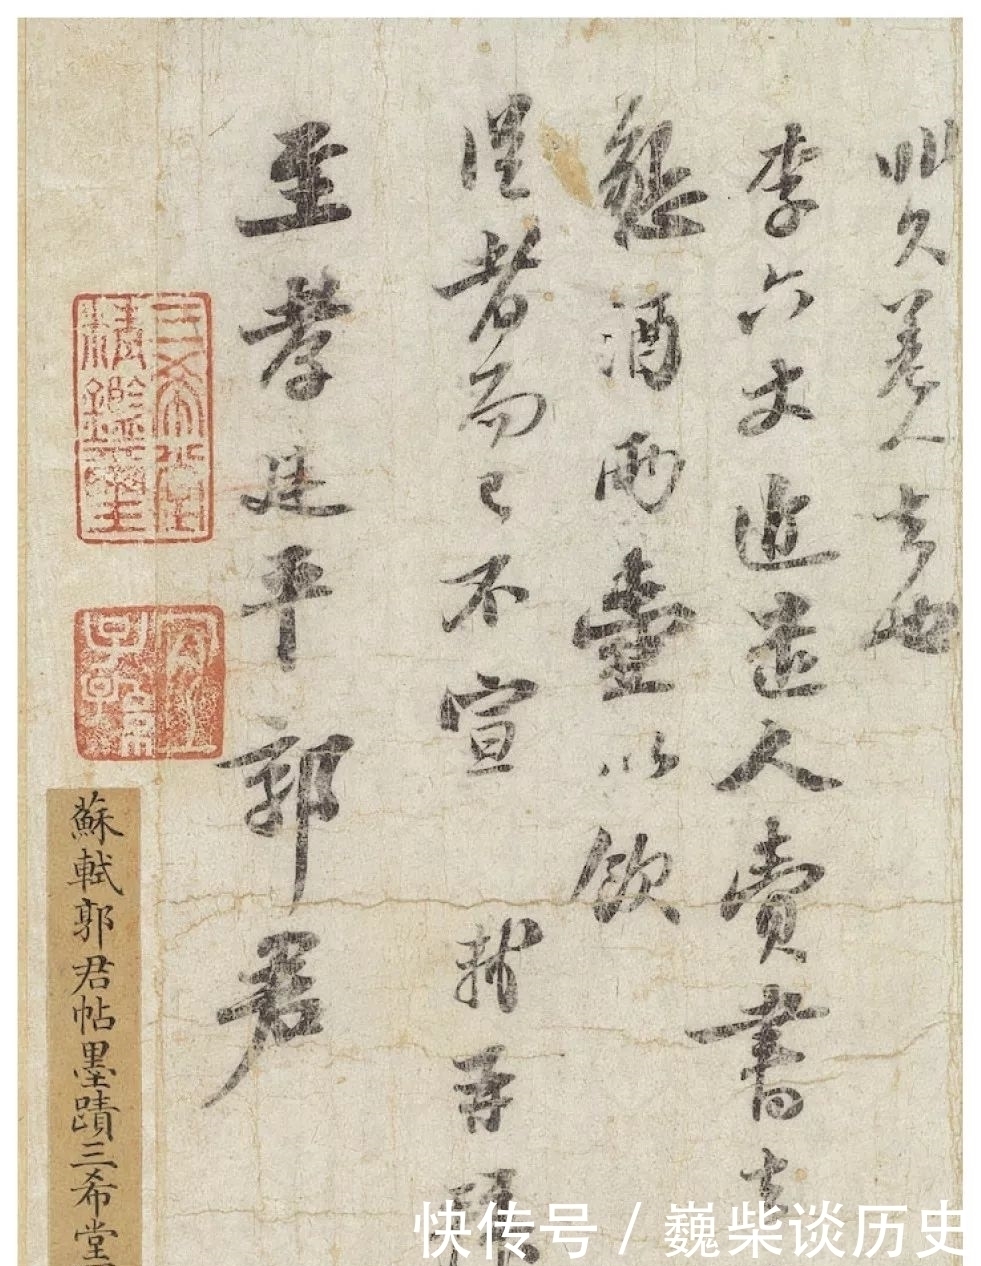 此久差人去也
李六丈近遣人賫書去
酒兩壺以飲
從者而已不宣 軾再拜
至孝廷平郭君
三希堂
精鑒璽
宜
子孫
蘇軾郭君帖墨蹟三希堂
快传号 / 巍柴谈历史